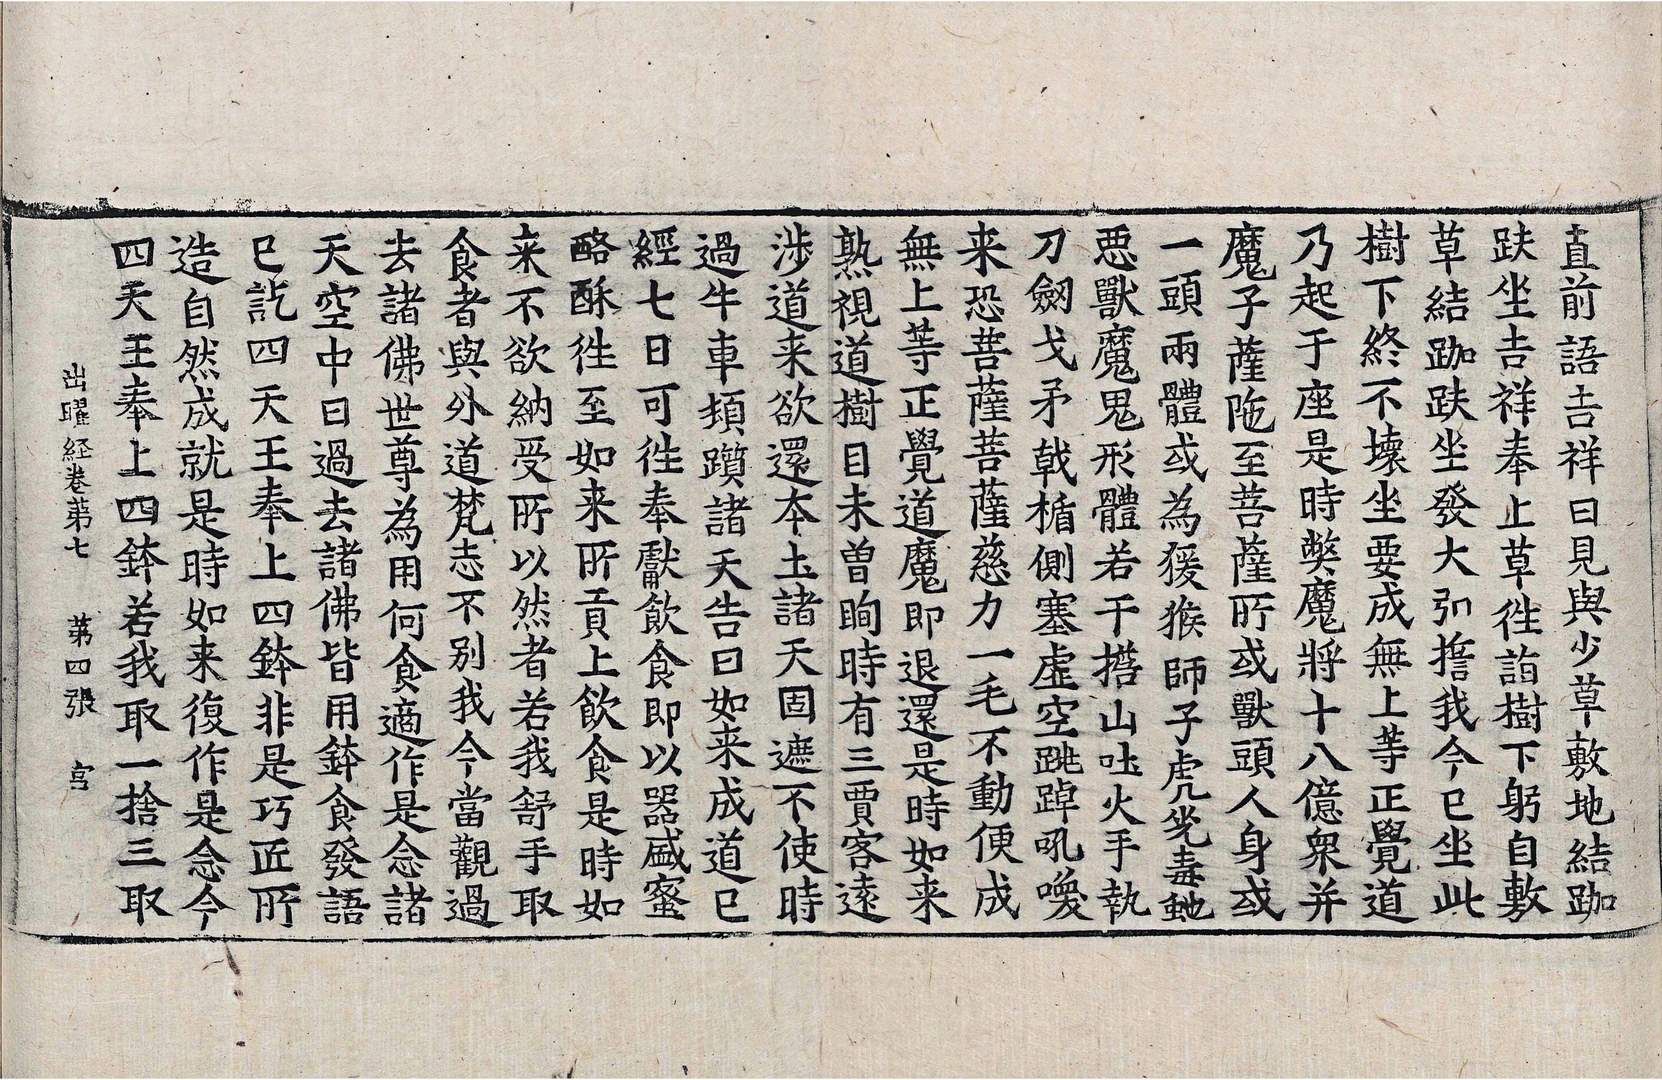 直前語吉祥曰見與少草敷地結跏
趺坐吉祥奉上草徃詣樹下躬自敷
草結跏趺坐發大弘擔我今已坐此
樹下終不壞坐要成無上等正覺道
乃起于座是時獘魔將十八億衆并
魔子薩陁至菩薩所或獸頭人身或
一頭兩體或為猨猴師子虎兕毒虵
惡獸魔鬼形體若干擔山吐火手執
刀劒戈矛戟楯側塞虛空跳踔吼喚
来恐菩薩菩薩慈力一毛不動便成
無上等正覺道魔即退還是時如来
熟視道樹目未曾眴時有三賈客遠
涉道来欲還本土諸天固遮不使時
過牛車頓躓諸天告曰如来成道已
經七日可徃奉獻飲食即以器盛蜜
酪酥徃至如来所貢上飲食是時如
来不欲納受所以然者若我舒手取
食者與外道梵志不別我今當觀過
去諸佛世尊為用何食適作是念諸
天空中曰過去諸佛皆用鉢食發語
已訖四天王奉上四鉢非是巧匠所
造自然成就是時如来復作是念今
四天王奉上四鉢若我取一捨三取
出曜経卷第七 第四張 宫